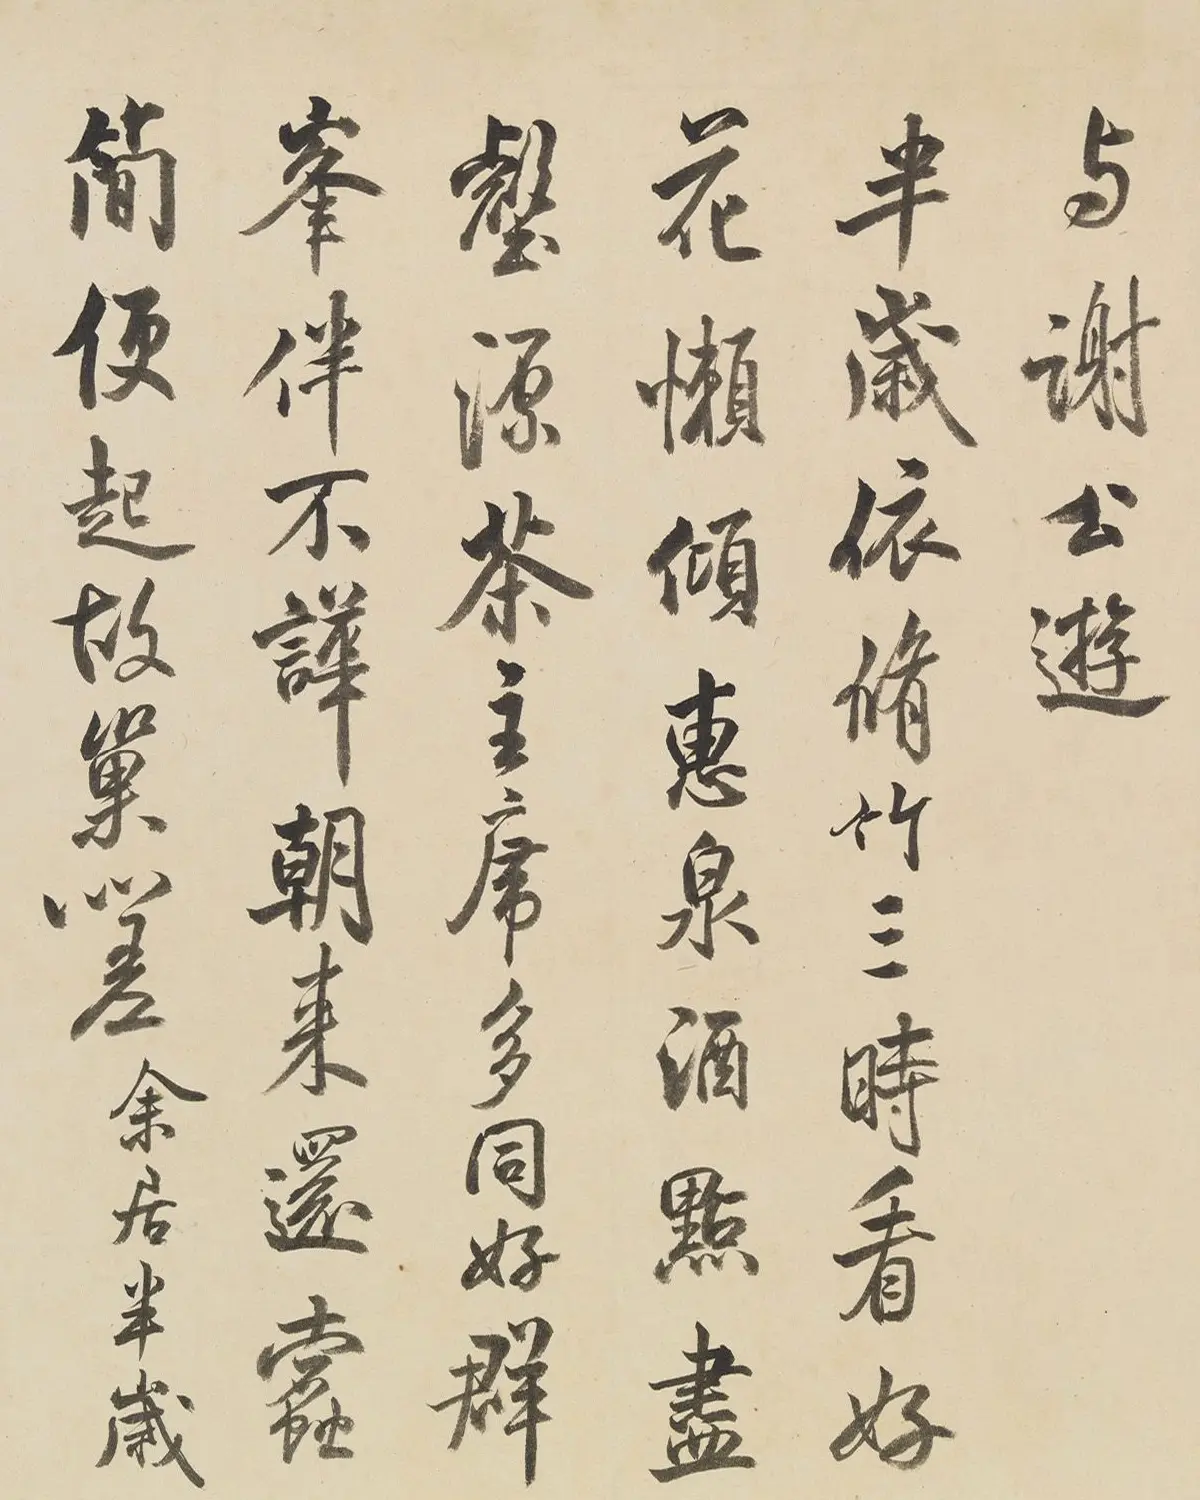 与謝公遊
半歲依脩竹三時看好
花懶傾惠泉酒點盡
壑源茶主席多同好群
峯伴不譁朝来還蠹
簡便起故巢嗟余居半歲